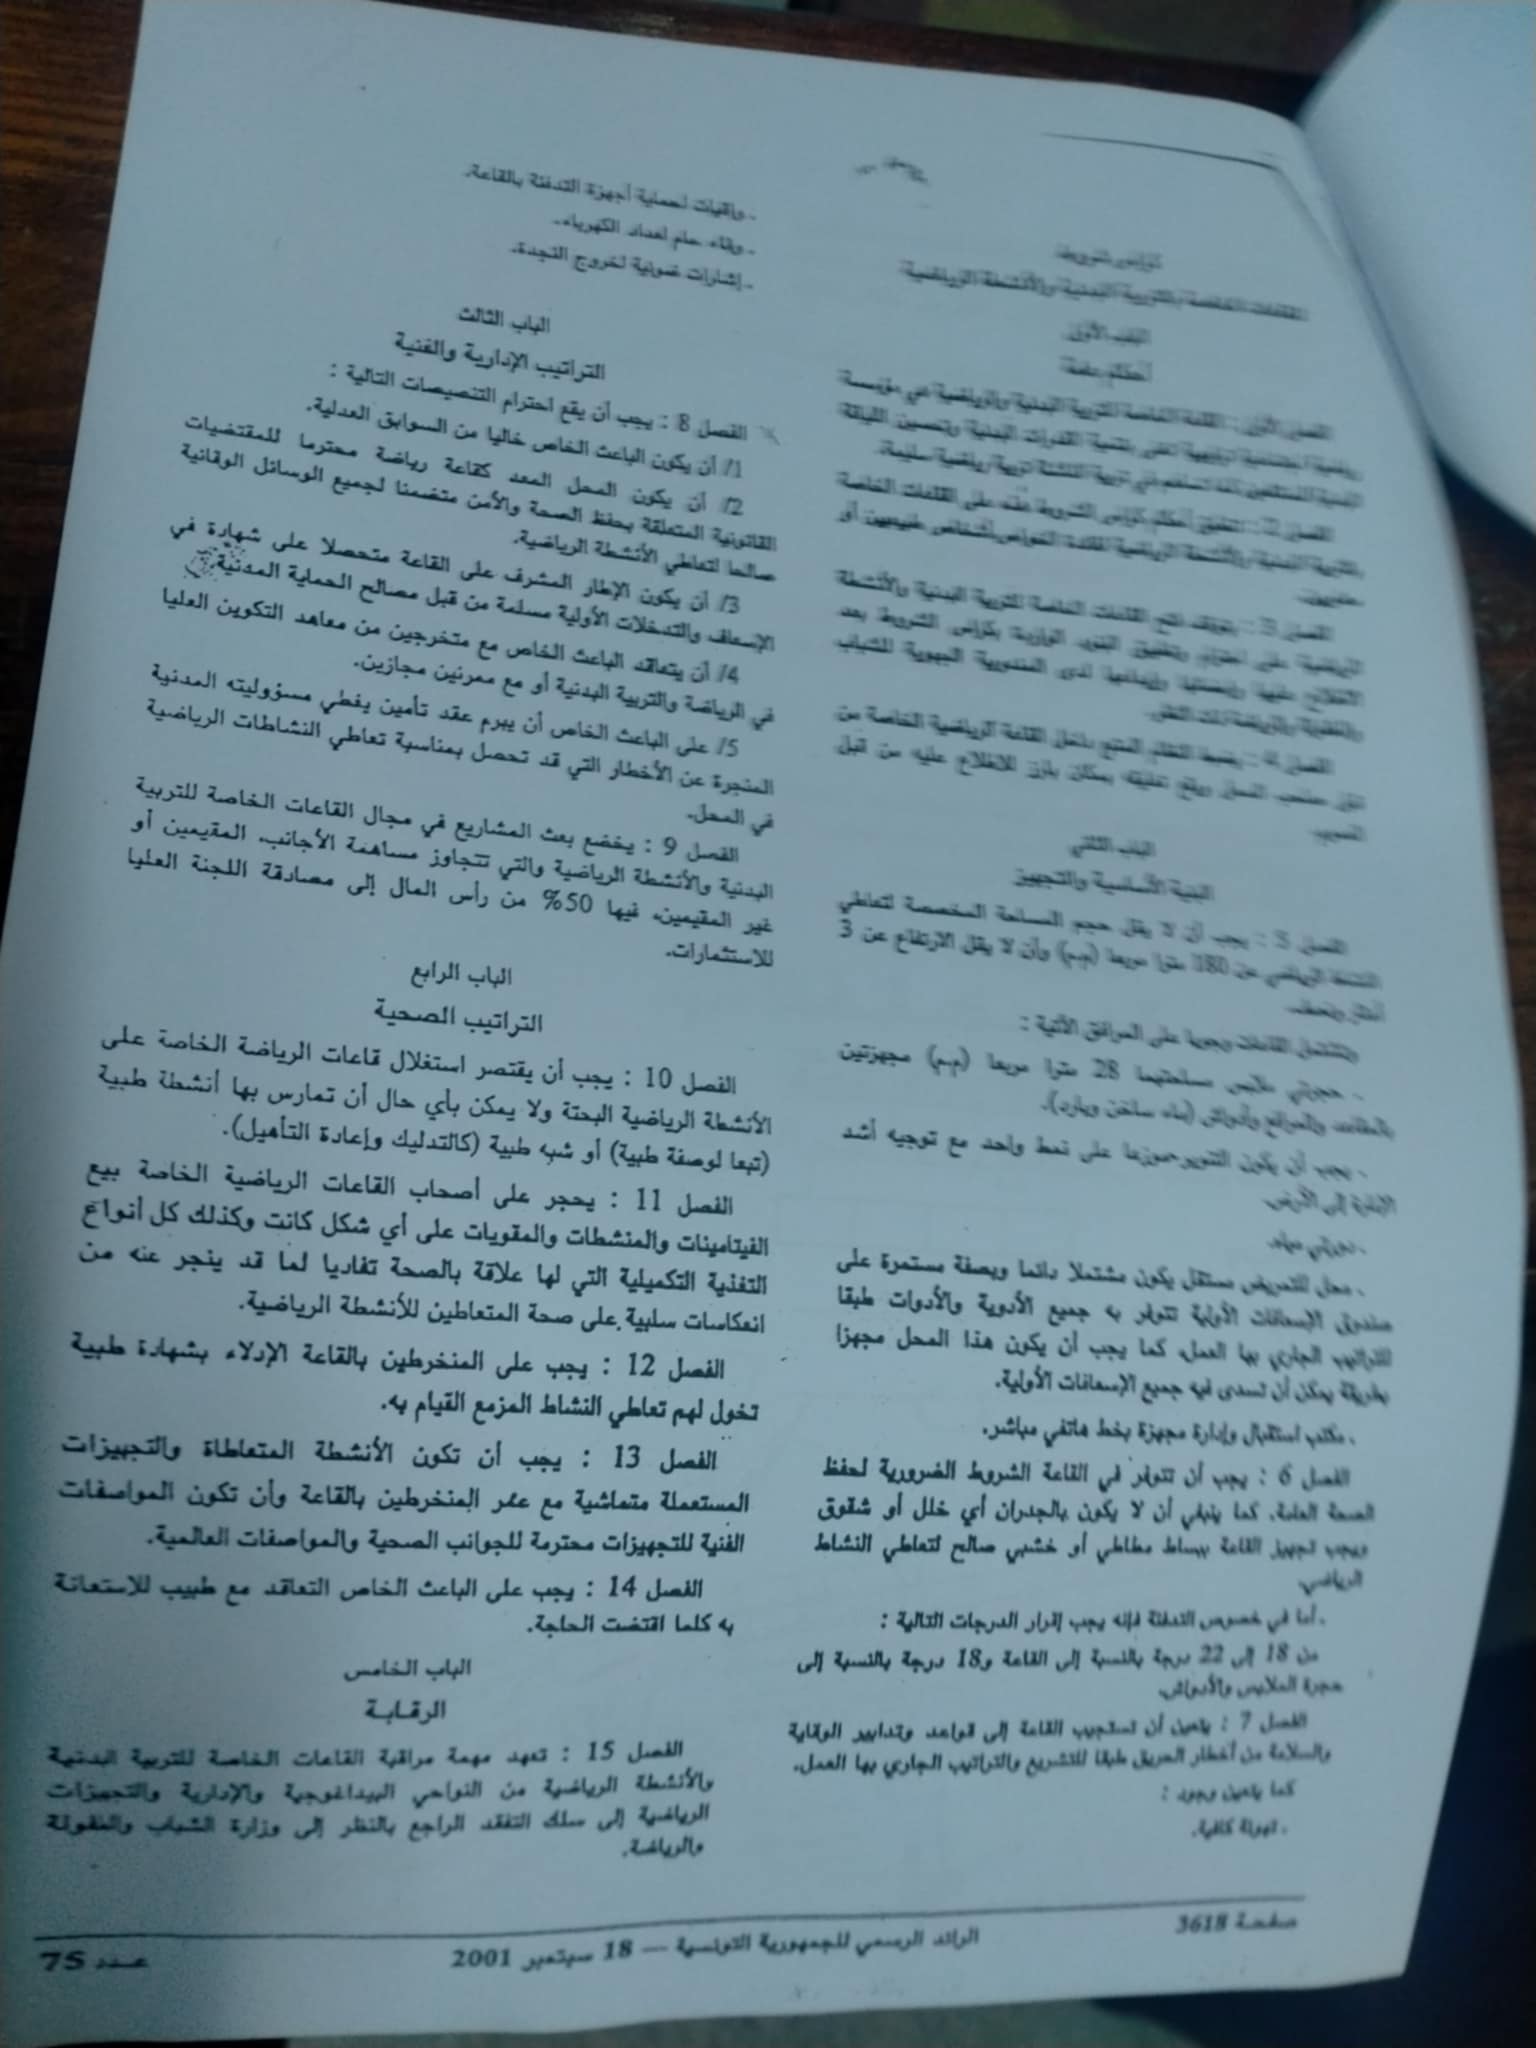 كراس شروط
القاعات الخاصة بالتربية البدنية والأنشطة الرياضية
الباب الأول
أحكام عامة
الفصل الأول : القاعة الخاصة للتربية البدنية والرياضية هي مؤسسة
رياضية اجتماعية ترفيهية تعنى بتنمية القدرات البدنية وتحسين اللياقة
البدنية للمنتفعين كما تساهم في تربية الناشئة تربية رياضية سليمة.
الفصل 2 : تنطبق أحكام كراس الشروط هذه على القاعات الخاصة
بالتربية البدنية والأنشطة الرياضية لفائدة الخواص أشخاص طبيعيين أو
معنويين.
الفصل 3 : يتوقف فتح القاعات الخاصة للتربية البدنية والأنشطة
الرياضية على احترام وتطبيق البنود الواردة بكراس الشروط بعد
الاطلاع عليها وإمضائها وإيداعها لدى المندوبية الجهوية للشباب
والطفولة والرياضة ذات النظر.
الفصل 4 : يضبط النظام المتبع داخل القاعة الرياضية الخاصة من
قبل صاحب المحل ويقع تعليقه بمكان بارز للاطلاع عليه من قبل
العموم.
الباب الثاني
البنية الأساسية والتجهيز
الفصل 5 : يجب أن لا يقل حجم المساحة المخصصة لتعاطي
النشاط الرياضي عن 180 مترا مربعا (م.م) وأن لا يقل الارتفاع عن 3
أمتار ونصف.
وتشتمل القاعات وجوبا على المرافق الآتية :
. حجرتي ملابس مساحتهما 28 مترا مربعا (م.م) مجهزتين
بالمقاعد والمرافع وأدواش (ماء ساخن وبارد).
. يجب أن يكون التنوير موزعا على نمط واحد مع توجيه أشد
الإنارة إلى الأرض.
. دورتي مياه.
. محل للتمريض مستقل يكون مشتملا دائما وبصفة مستمرة على
صندوق الإسعافات الأولية تتوفر به جميع الأدوية والأدوات طبقا
للتراتيب الجاري بها العمل، كما يجب أن يكون هذا المحل مجهزا
بطريقة يمكن أن تسدى فيه جميع الإسعافات الأولية.
. مكتب استقبال وإدارة مجهزة بخط هاتفي مباشر.
الفصل 6 : يجب أن تتوفر في القاعة الشروط الضرورية لحفظ
الصحة العامة، كما ينبغي أن لا يكون بالجدران أي خلل أو شقوق
ويجب تجهيز القاعة ببساط مطاطي أو خشبي صالح لتعاطي النشاط
الرياضي.
. أما في خصوص التدفئة فإنه يجب إقرار الدرجات التالية :
من 18 إلى 22 درجة بالنسبة إلى القاعة و18 درجة بالنسبة إلى
حجرة الملابس والأدواش.
الفصل 7 : يتعين أن تستجيب القاعة إلى قواعد وتدابير الوقاية
والسلامة من أخطار الحريق طبقا للتشريع والتراتيب الجاري بها العمل.
كما يتعين وجود :
. تهوئة كافية.
. واقيات لحماية أجهزة التدفئة بالقاعة.
. وقاء عام لعداد الكهرباء.
. إشارات ضوئية لخروج النجدة.
الباب الثالث
التراتيب الإدارية والفنية
الفصل 8 : يجب أن يقع احترام التنصيصات التالية :
1/ أن يكون الباعث الخاص خاليا من السوابق العدلية.
2/ أن يكون المحل المعد كقاعة رياضة محترما للمقتضيات
القانونية المتعلقة بحفظ الصحة والأمن متضمنا لجميع الوسائل الوقائية
صالحا لتعاطي الأنشطة الرياضية.
3/ أن يكون الإطار المشرف على القاعة متحصلا على شهادة في
الإسعاف والتدخلات الأولية مسلمة من قبل مصالح الحماية المدنية.
4/ أن يتعاقد الباعث الخاص مع متخرجين من معاهد التكوين العليا
في الرياضة والتربية البدنية أو مع ممرنين مجازين.
5/ على الباعث الخاص أن يبرم عقد تأمين يغطي مسؤوليته المدنية
المنجرة عن الأخطار التي قد تحصل بمناسبة تعاطي النشاطات الرياضية
في المحل.
الفصل 9 : يخضع بعث المشاريع في مجال القاعات الخاصة للتربية
البدنية والأنشطة الرياضية والتي تتجاوز مساهمة الأجانب، المقيمين أو
غير المقيمين، فيها 50% من رأس المال إلى مصادقة اللجنة العليا
للاستثمارات.
الباب الرابع
التراتيب الصحية
الفصل 10 : يجب أن يقتصر استغلال قاعات الرياضة الخاصة على
الأنشطة الرياضية البحتة ولا يمكن بأي حال أن تمارس بها أنشطة طبية
(تبعا لوصفة طبية) أو شبه طبية (كالتدليك وإعادة التأهيل).
الفصل 11 : يحجر على أصحاب القاعات الرياضية الخاصة بيع
الفيتامينات والمنشطات والمقويات على أي شكل كانت وكذلك كل أنواع
التغذية التكميلية التي لها علاقة بالصحة تفاديا لما قد ينجر عنه من
انعكاسات سلبية على صحة المتعاطين للأنشطة الرياضية.
الفصل 12 : يجب على المنخرطين بالقاعة الإدلاء بشهادة طبية
تخول لهم تعاطي النشاط المزمع القيام به.
الفصل 13 : يجب أن تكون الأنشطة المتعاطاة والتجهيزات
المستعملة متماشية مع عمر المنخرطين بالقاعة وأن تكون المواصفات
الفنية للتجهيزات محترمة للجوانب الصحية والمواصفات العالمية.
الفصل 14 : يجب على الباعث الخاص التعاقد مع طبيب للاستعانة
به كلما اقتضت الحاجة.
الباب الخامس
الرقابة
الفصل 15 : تعهد مهمة مراقبة القاعات الخاصة للتربية البدنية
والأنشطة الرياضية من النواحي البيداغوجية والإدارية والتجهيزات
الرياضية إلى سلك التفقد الراجع بالنظر إلى وزارة الشباب والطفولة
والرياضة.
صفحة 3618
الرائد الرسمي للجمهورية التونسية — 18 سبتمبر 2001
عدد 75